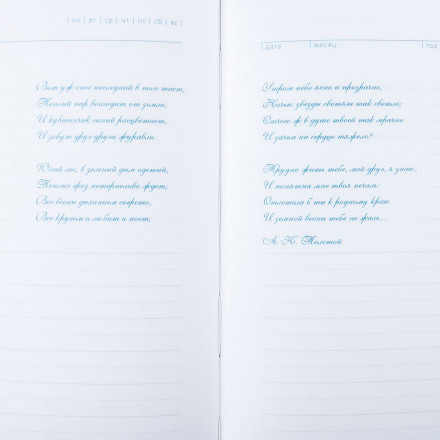 ПН | ВТ | СР | ЧТ | ПТ | СБ | ВС |
Вот уж снег последний в поле тает,
Теплый пар восходит от земли,
И кувшинчик синий расцветает,
И зовут друг друга журавли.
Юный лес, в зеленый дым одетый,
Теплых гроз нетерпеливо ждет;
Все весны дыханием согрето,
Все кругом и любит и поет;
| ДАТА | МЕСЯЦ | ГОД
Утром небо ясно и прозрачно,
Ночью звезды светят так светло;
Отчего ж в душе твоей так мрачно
И зачем на сердце тяжело?
Трудно жить тебе, мой друг, я знаю,
И понятна мне твоя печаль:
Отлетела б ты к родному краю
И земной весны тебе не жаль...
А. К. Толстой